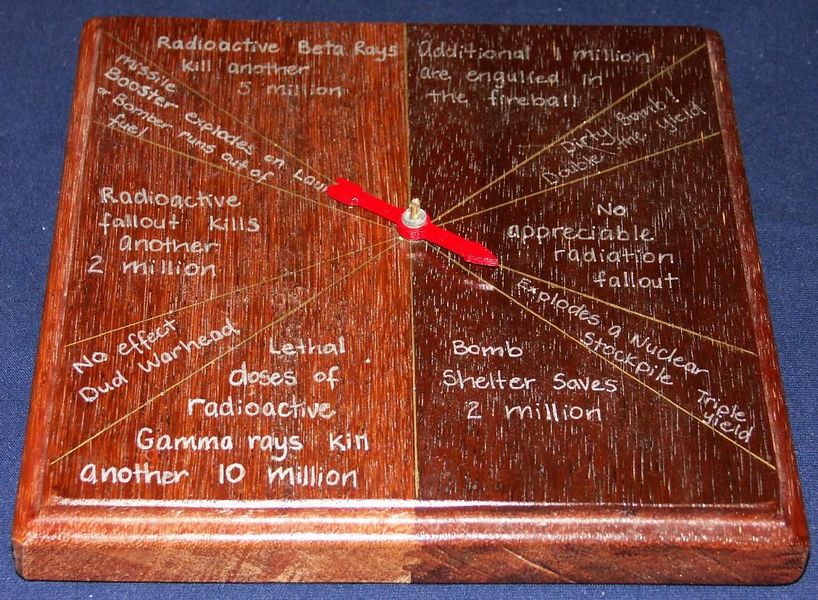 Radioactive Beta Rays
kill another
5 million
Additional 1 million
are engulfed in
the fireball
missile
Booster explodes on Lau
or Bomber runs out of
fuel
Dirty Bomb!
Double the Yield
Radioactive
fallout kills
another
2 million
No
appreciable
radiation
fallout
No effect
Dud Warhead
Explodes a Nuclear
Stockpile Triple
yield
Lethal
doses of
radioactive
Gamma rays kill
another 10 million
Bomb
Shelter Saves
2 million